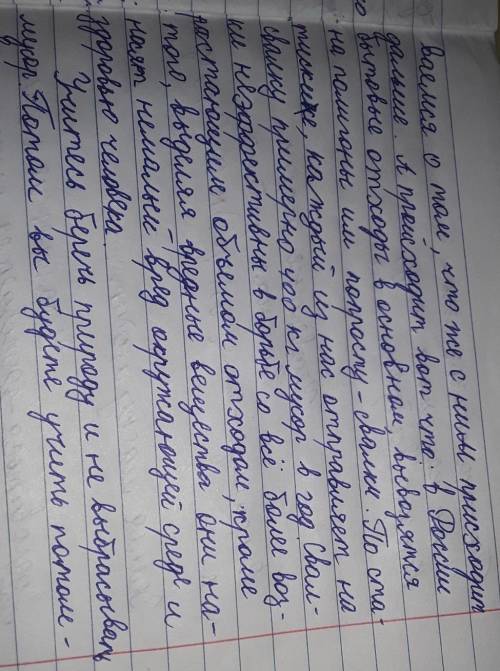 ваемся о том, что же с ним присходит
дальше. А происходит вот что: в России
бытовые отходы в основном, вывозятся
на полигоны или попросту - свалки. По ста-
тистике, каждый из нас отправляет на
свалку примерно 400 кг мусор в год. Свал-
ки неэффективны в борьбе со всё более воз-
ростающие объемом отходам, кроме
того, выделяя вредные вещества они на-
носят немалый вред окружающей среде и
здоровью человека.
Учитесь беречь природу и не выбрасывать
мусор. Потом вы будете учить потом-